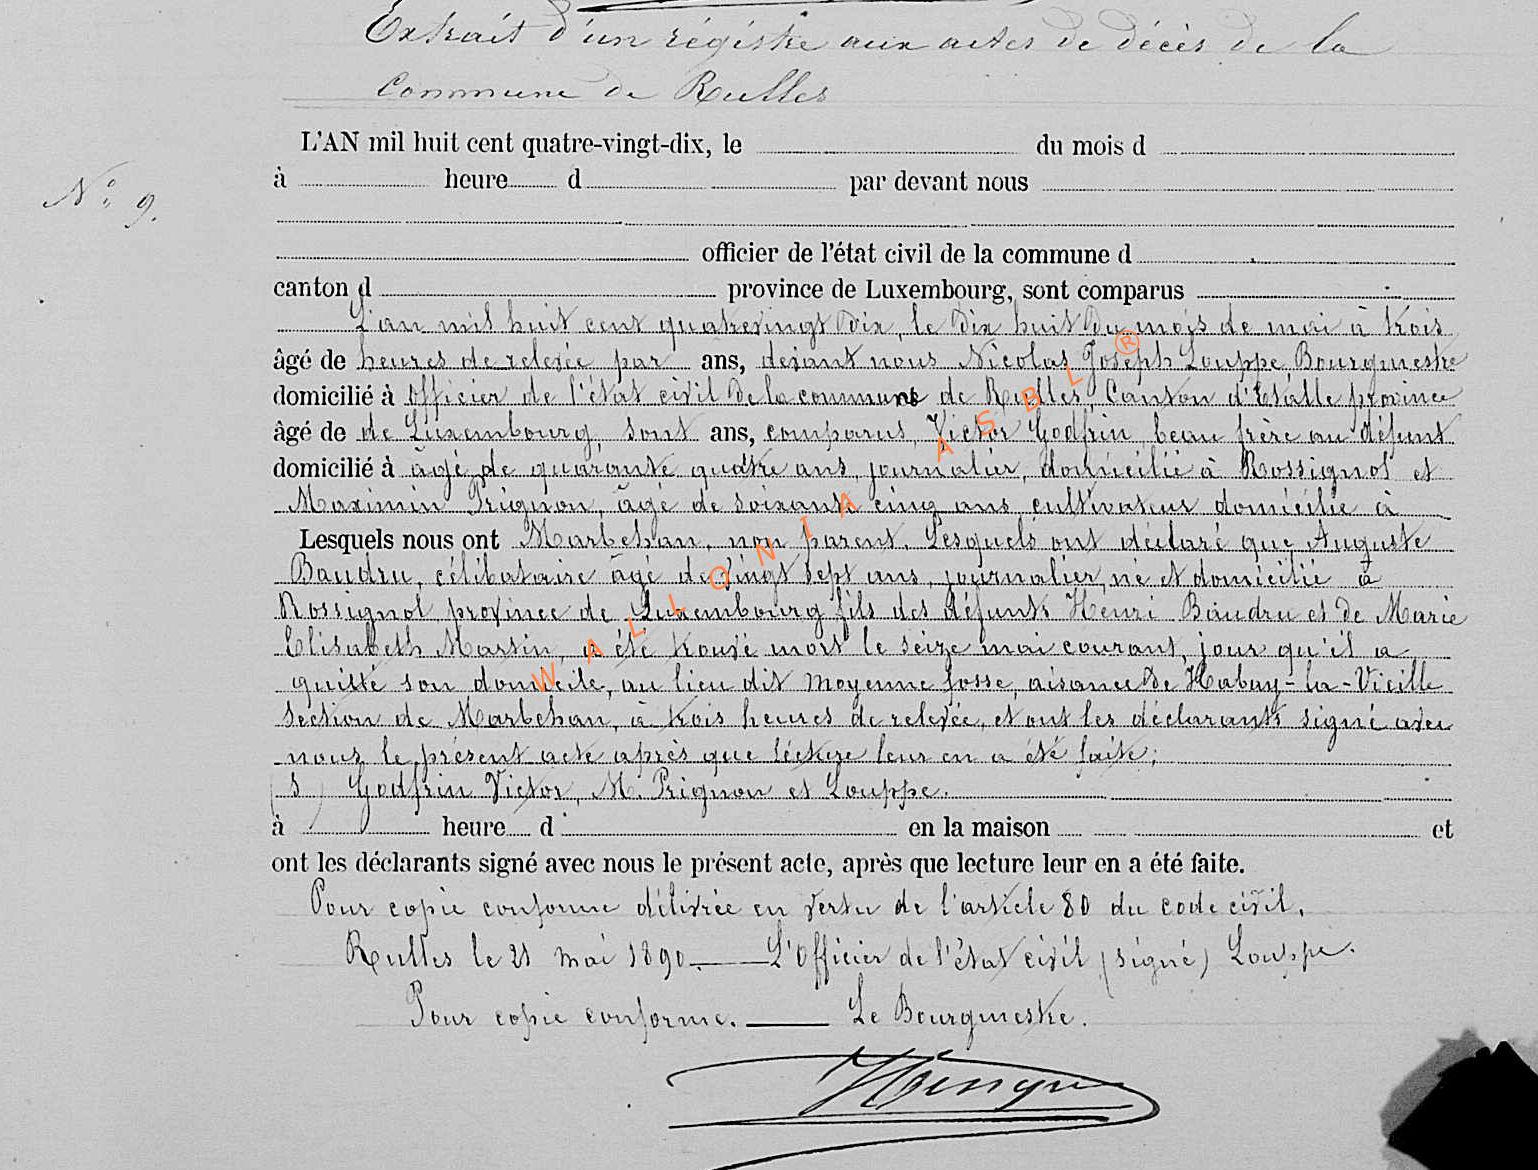 Extrait d'un régistre aux actes de décès de la
Commune de Rulles
L'AN mil huit cent quatre-vingt-dix, le du mois d
N° 9.
à heure d par devant nous
officier de l'état civil de la commune d
canton d province de Luxembourg, sont comparus
L'an mil huit cent quatrevingt dix, le dix huit du mois de mai à trois
âgé de heures de relevée par ans, devant nous Nicolas Joseph Louppe Bourgmestre
domicilié à officier de l'état civil de la commune de Rulles, Canton d'Etalle province
âgé de de Luxembourg, sont ans, comparus, Victor Godfrin, beau frère au défunt
domicilié à âgé de quarante quatre ans, journalier, domicilié à Rossignol et
Maximin Prignon, âgé de soixante cinq ans cultivateur domicilié à
Lesquels nous ont Marbehan, non parent. Lesquels ont déclaré que Auguste
Baudru, célibataire âgé de vingt sept ans, journalier, né et domicilié à
Rossignol province de Luxembourg fils des défunts Henri Baudru et de Marie
Elisabeth Martin, a été trouvé mort le seize mai courant, jour qu'il a
quitté son domicile, au lieu dit moyenne fosse, aisance de Habay-la-Vieille
section de Marbehan, à trois heures de relevée, et ont les déclarants signé avec
nous le présent acte après que lecture leur en a été faite;
(s) Godfrin Victor, M. Prignon et Louppe.
à heure d en la maison et
ont les déclarants signé avec nous le présent acte, après que lecture leur en a été faite.
Pour copie conforme délivrée en vertu de l'article 80 du code civil.
Rulles le 21 mai 1890. L'Officier de l'état civil (signé) Louppe.
Pour copie conforme. Le Bourgmestre.
WALLONIA ASBL ®